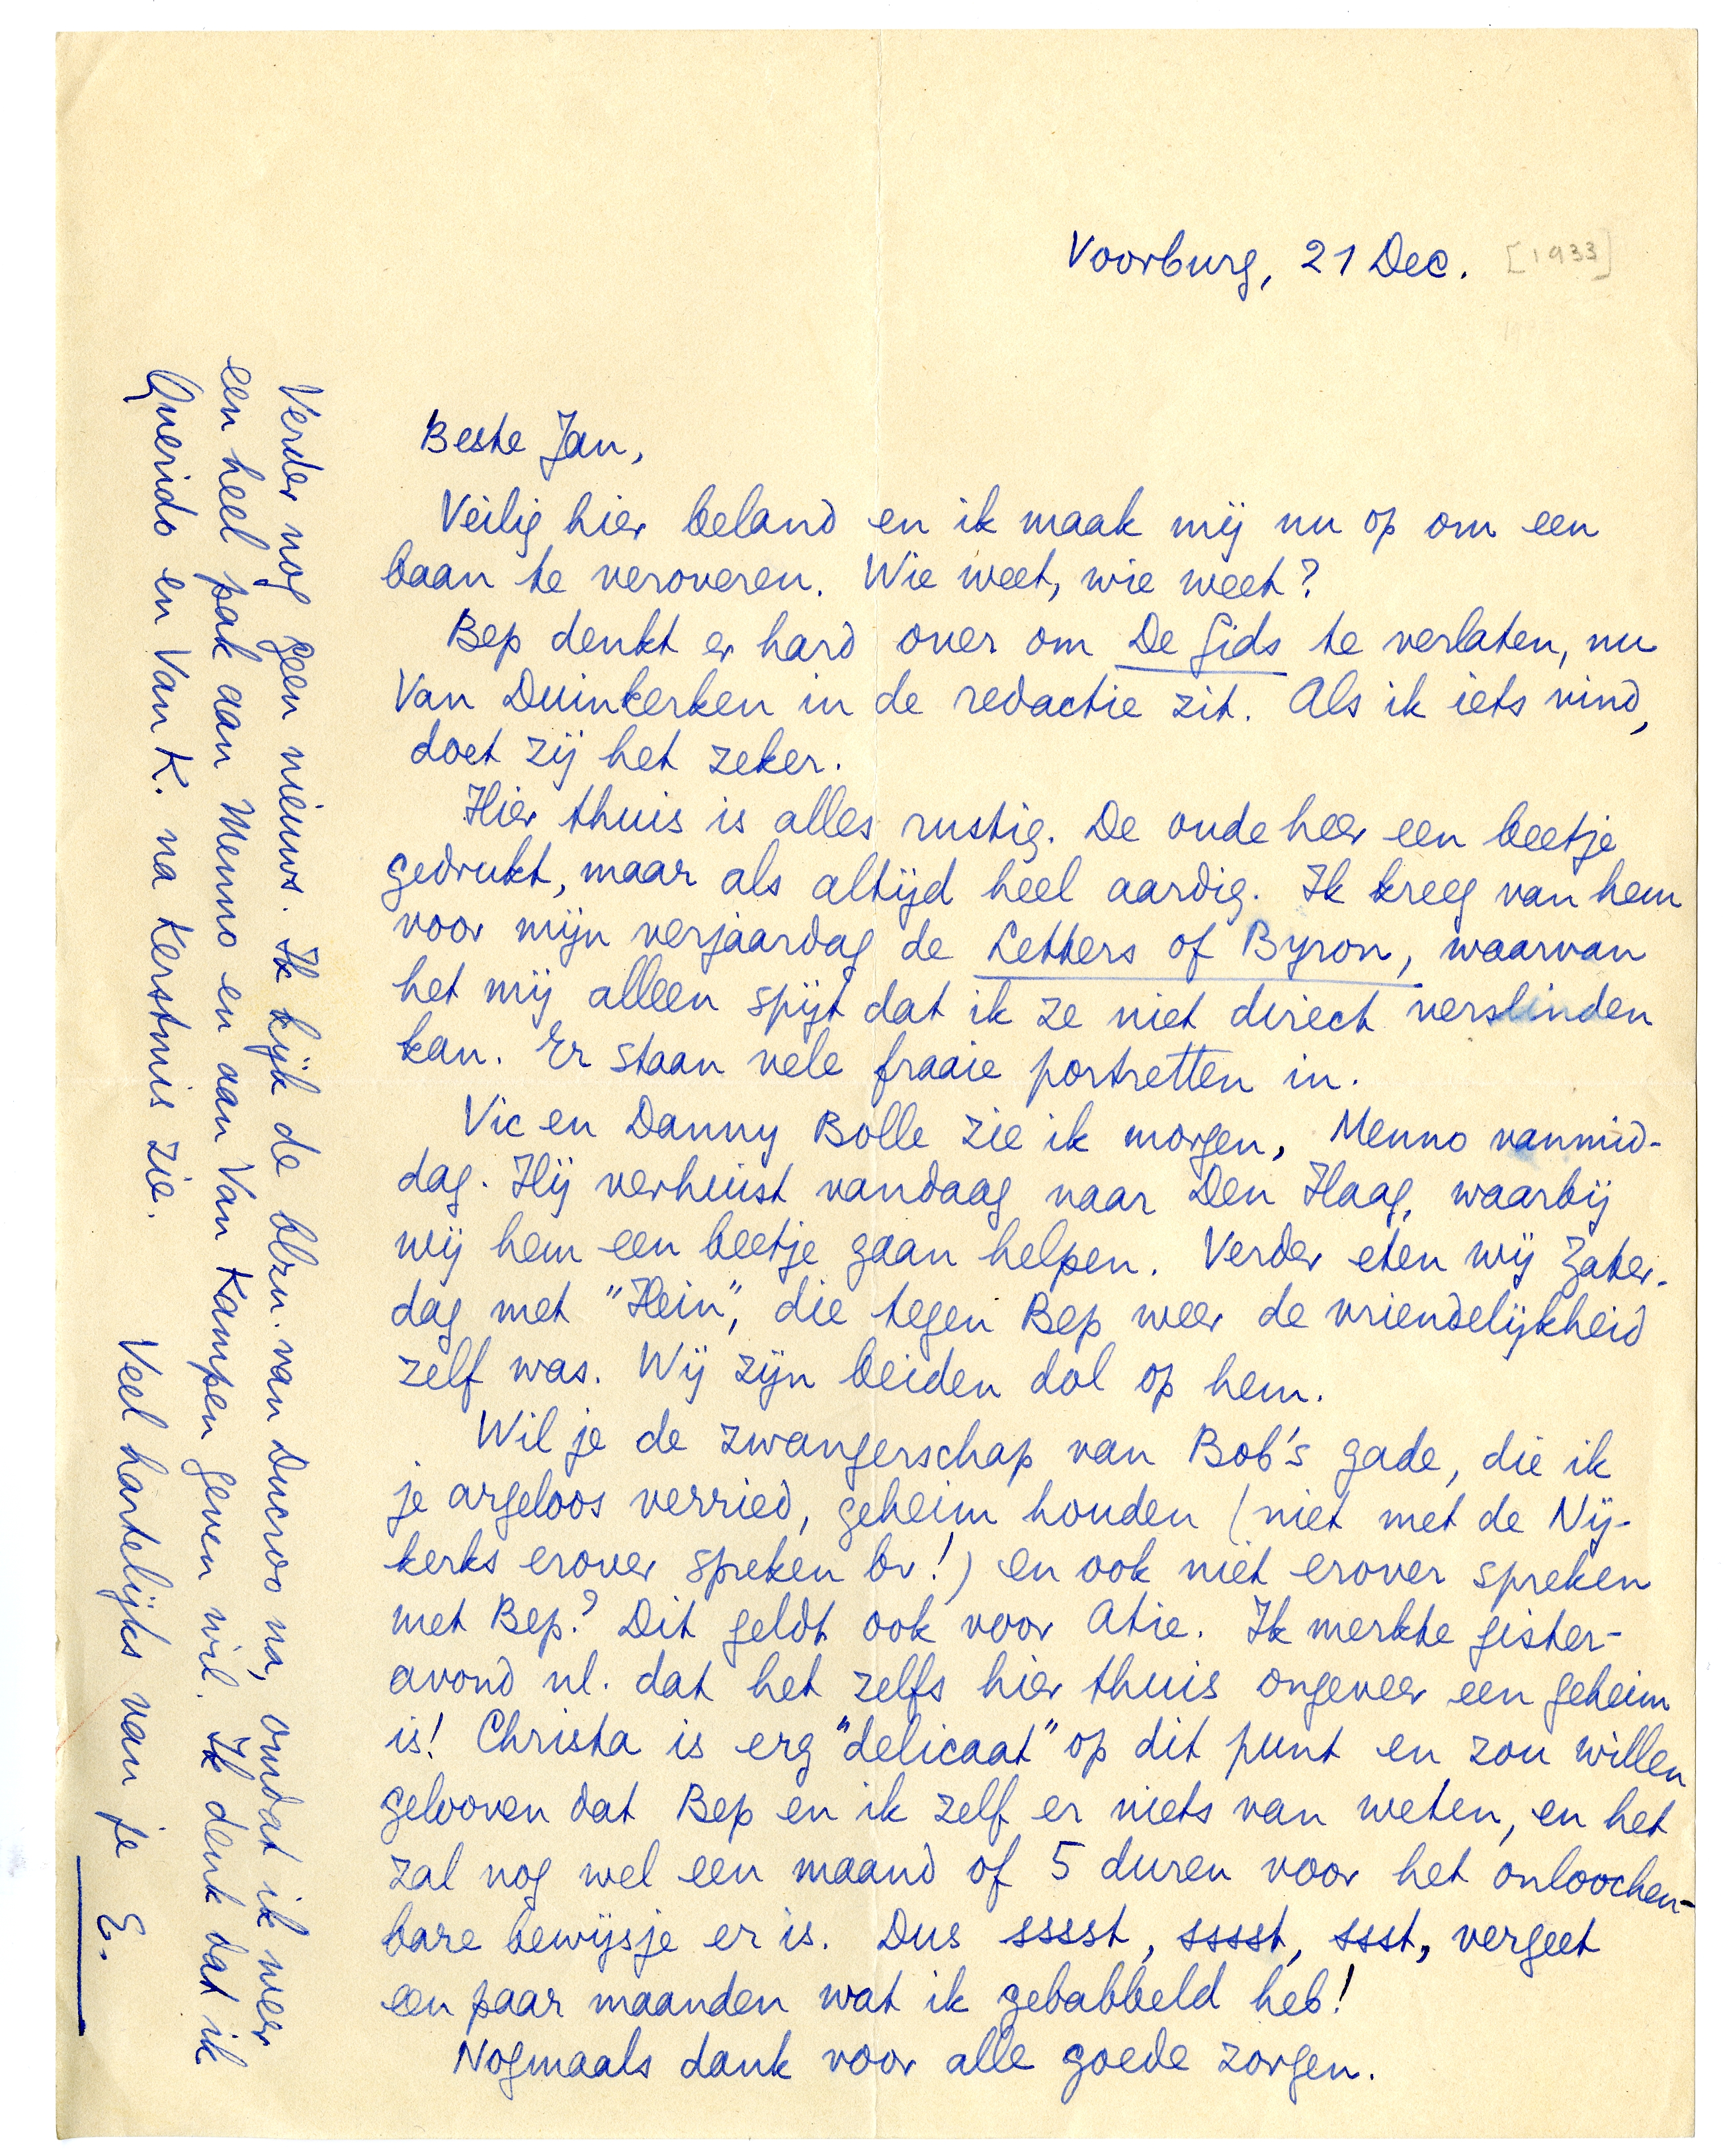 Voorburg, 21 Dec. [1933]
Beste Jan,
Veilig hier beland en ik maak mij nu op om een
baan te veroveren. Wie weet, wie weet?
Bep denkt er hard over om De Gids te verlaten, nu
Van Duinkerken in de redactie zit. Als ik iets vind,
doet zij het zeker.
Hier thuis is alles rustig. De oude heer een beetje
gedrukt, maar als altijd heel aardig. Ik kreeg van hem
voor mijn verjaardag de Letters of Byron, waarvan
het mij alleen spijt dat ik ze niet direct verslinden
kan. Er staan vele fraaie portretten in.
Vic en Danny Bolle zie ik morgen, Menno vanmid-
dag. Hij verhuist vandaag naar Den Haag, waarbij
wij hem een beetje gaan helpen. Verder eten wij Zater-
dag met "Hein", die tegen Bep weer de vriendelijkheid
zelf was. Wij zijn beiden dol op hem.
Wil je de zwangerschap van Bob's gade, die ik
je argeloos verried, geheim houden (niet met de Nij-
kerks erover spreken bv!) en ook niet erover spreken
met Bep? Dit geldt ook voor Atie. Ik merkte gister-
avond nl. dat het zelfs hier thuis ongeveer een geheim
is! Christa is erg "delicaat" op dit punt en zou willen
gelooven dat Bep en ik zelf er niets van weten, en het
zal nog wel een maand of 5 duren voor het onloochen-
bare bewijsje er is. Dus sssst, sssst, ssst, vergeet
een paar maanden wat ik gebabbeld heb!
Nogmaals dank voor alle goede zorgen.
Verder nog geen nieuws. Ik kijk de blzn. van Ducroo na, omdat ik weer
een heel pak aan Menno en aan Van Kampen geven wil. Ik denk dat ik
Querido en Van K. na Kerstmis zie.
Veel hartelijks van je
E.